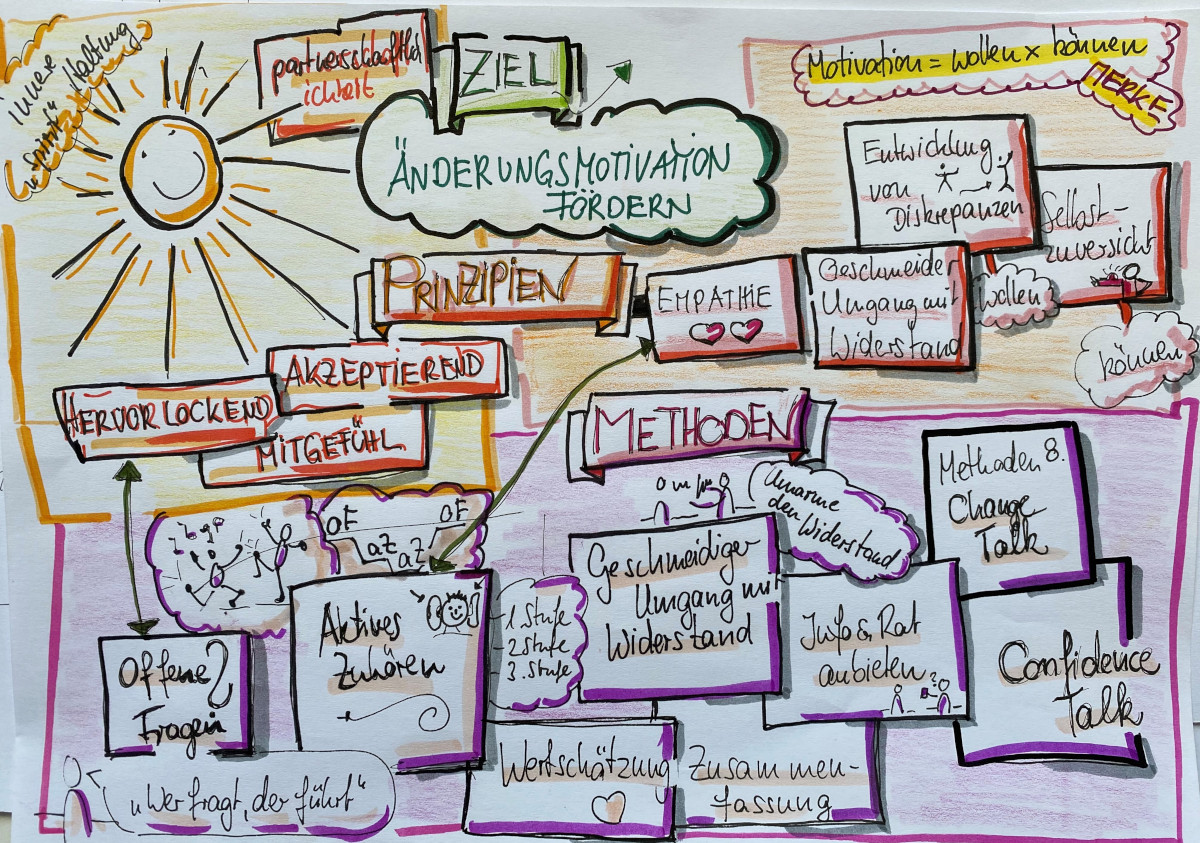 innere
Haltung
"Spirit"
partnerschaftl
ichkeit
ZIEL
ÄNDERUNGSMOTIVATION
FÖRDERN
Motivation = wollen x können
MERKE
PRINZIPIEN
EMPATHIE
Geschmeider
Umgang mit
Widerstand
Entwicklung
von
Diskrepanzen
Selbst-
zuversicht
wollen
können
AKZEPTIEREND
HERVORLOCKEND
MITGEFÜHL
METHODEN
Umarme
den Widerstand
Methoden 8.
Change
Talk
oF oF
aZ
aZ
Offene
Fragen
?
Aktives
Zuhören
1. Stufe
- 2. Stufe
- 3. Stufe
Geschmeidiger
Umgang mit
Widerstand
Info & Rat
anbieten
Confidence
Talk
Wertschätzung
Zusammen-
fassung
"Wer fragt, der führt"